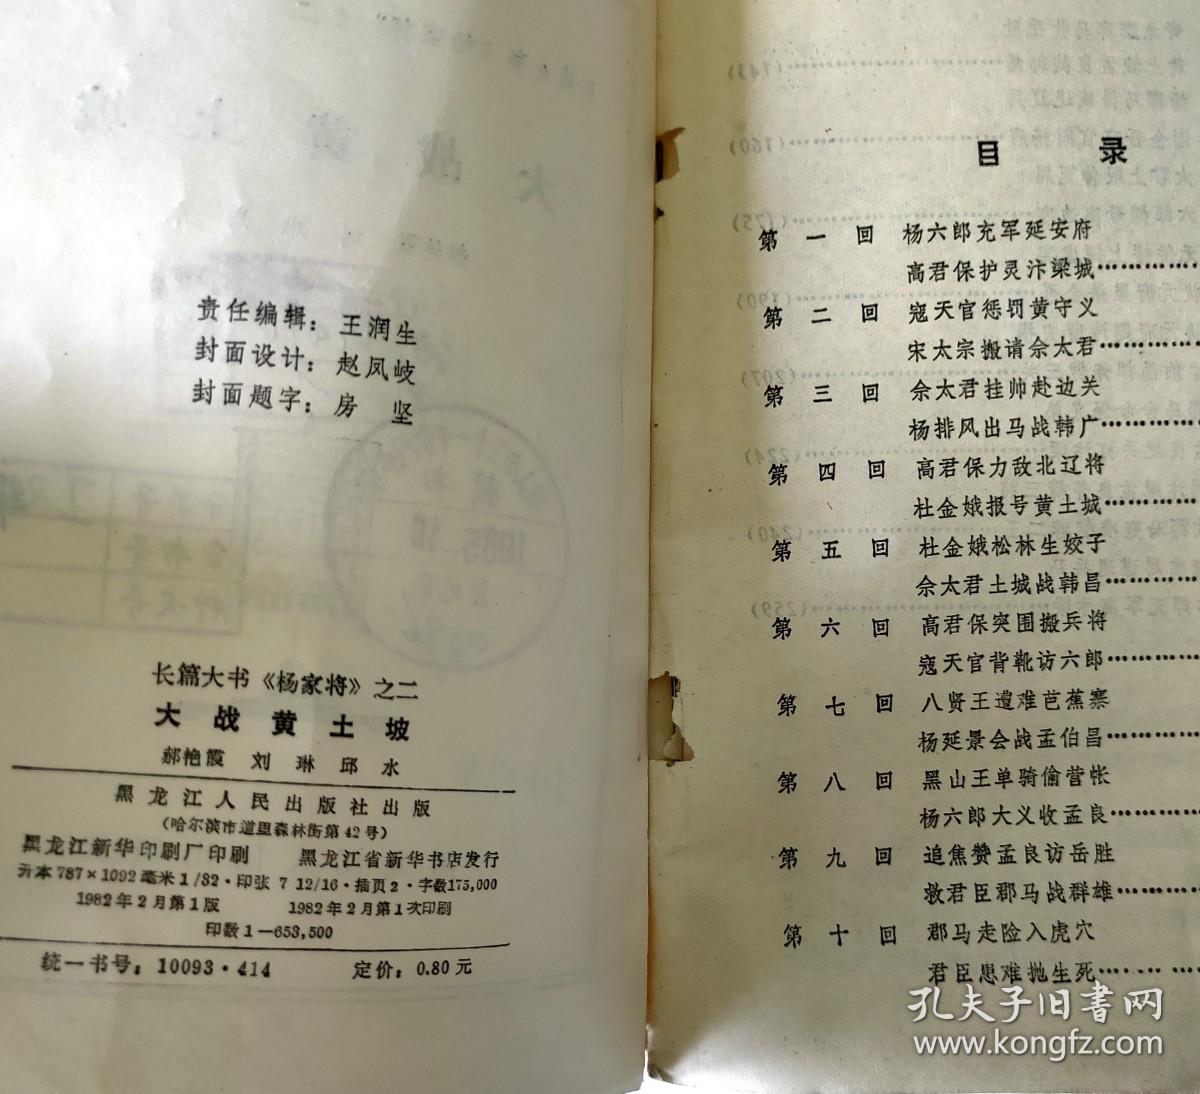 责任编辑：王润生
封面设计：赵凤岐
封面题字：房 坚
长篇大书《杨家将》之二
大战黄土坡
郝艳霞 刘琳 邱水
黑龙江人民出版社出版
（哈尔滨市道里森林街第42号）
黑龙江新华印刷厂印刷 黑龙江省新华书店发行
开本787×1092毫米1/32·印张 7 12/16·插页2·字数175,000
1982年2月第1版 1982年2月第1次印刷
印数1—653,500
统一书号：10093·414 定价：0.80元
目 录
第一回 杨六郎充军延安府
高君保护灵汴梁城…………
第二回 寇天官惩罚黄守义
宋太宗搬请佘太君…………
第三回 佘太君挂帅赴边关
杨排风出马战韩广…………
第四回 高君保力敌北辽将
杜金娥报号黄土城…………
第五回 杜金娥松林生姣子
佘太君土城战韩昌…………
第六回 高君保突围搬兵将
寇天官背靴访六郎…………
第七回 八贤王遭难芭蕉寨
杨延景会战孟伯昌…………
第八回 黑山王单骑偷营帐
杨六郎大义收孟良…………
第九回 追焦赞孟良访岳胜
救君臣郡马战群雄…………
第十回 郡马走险入虎穴
君臣患难抛生死…………
孔夫子旧书网
www.kongfz.com